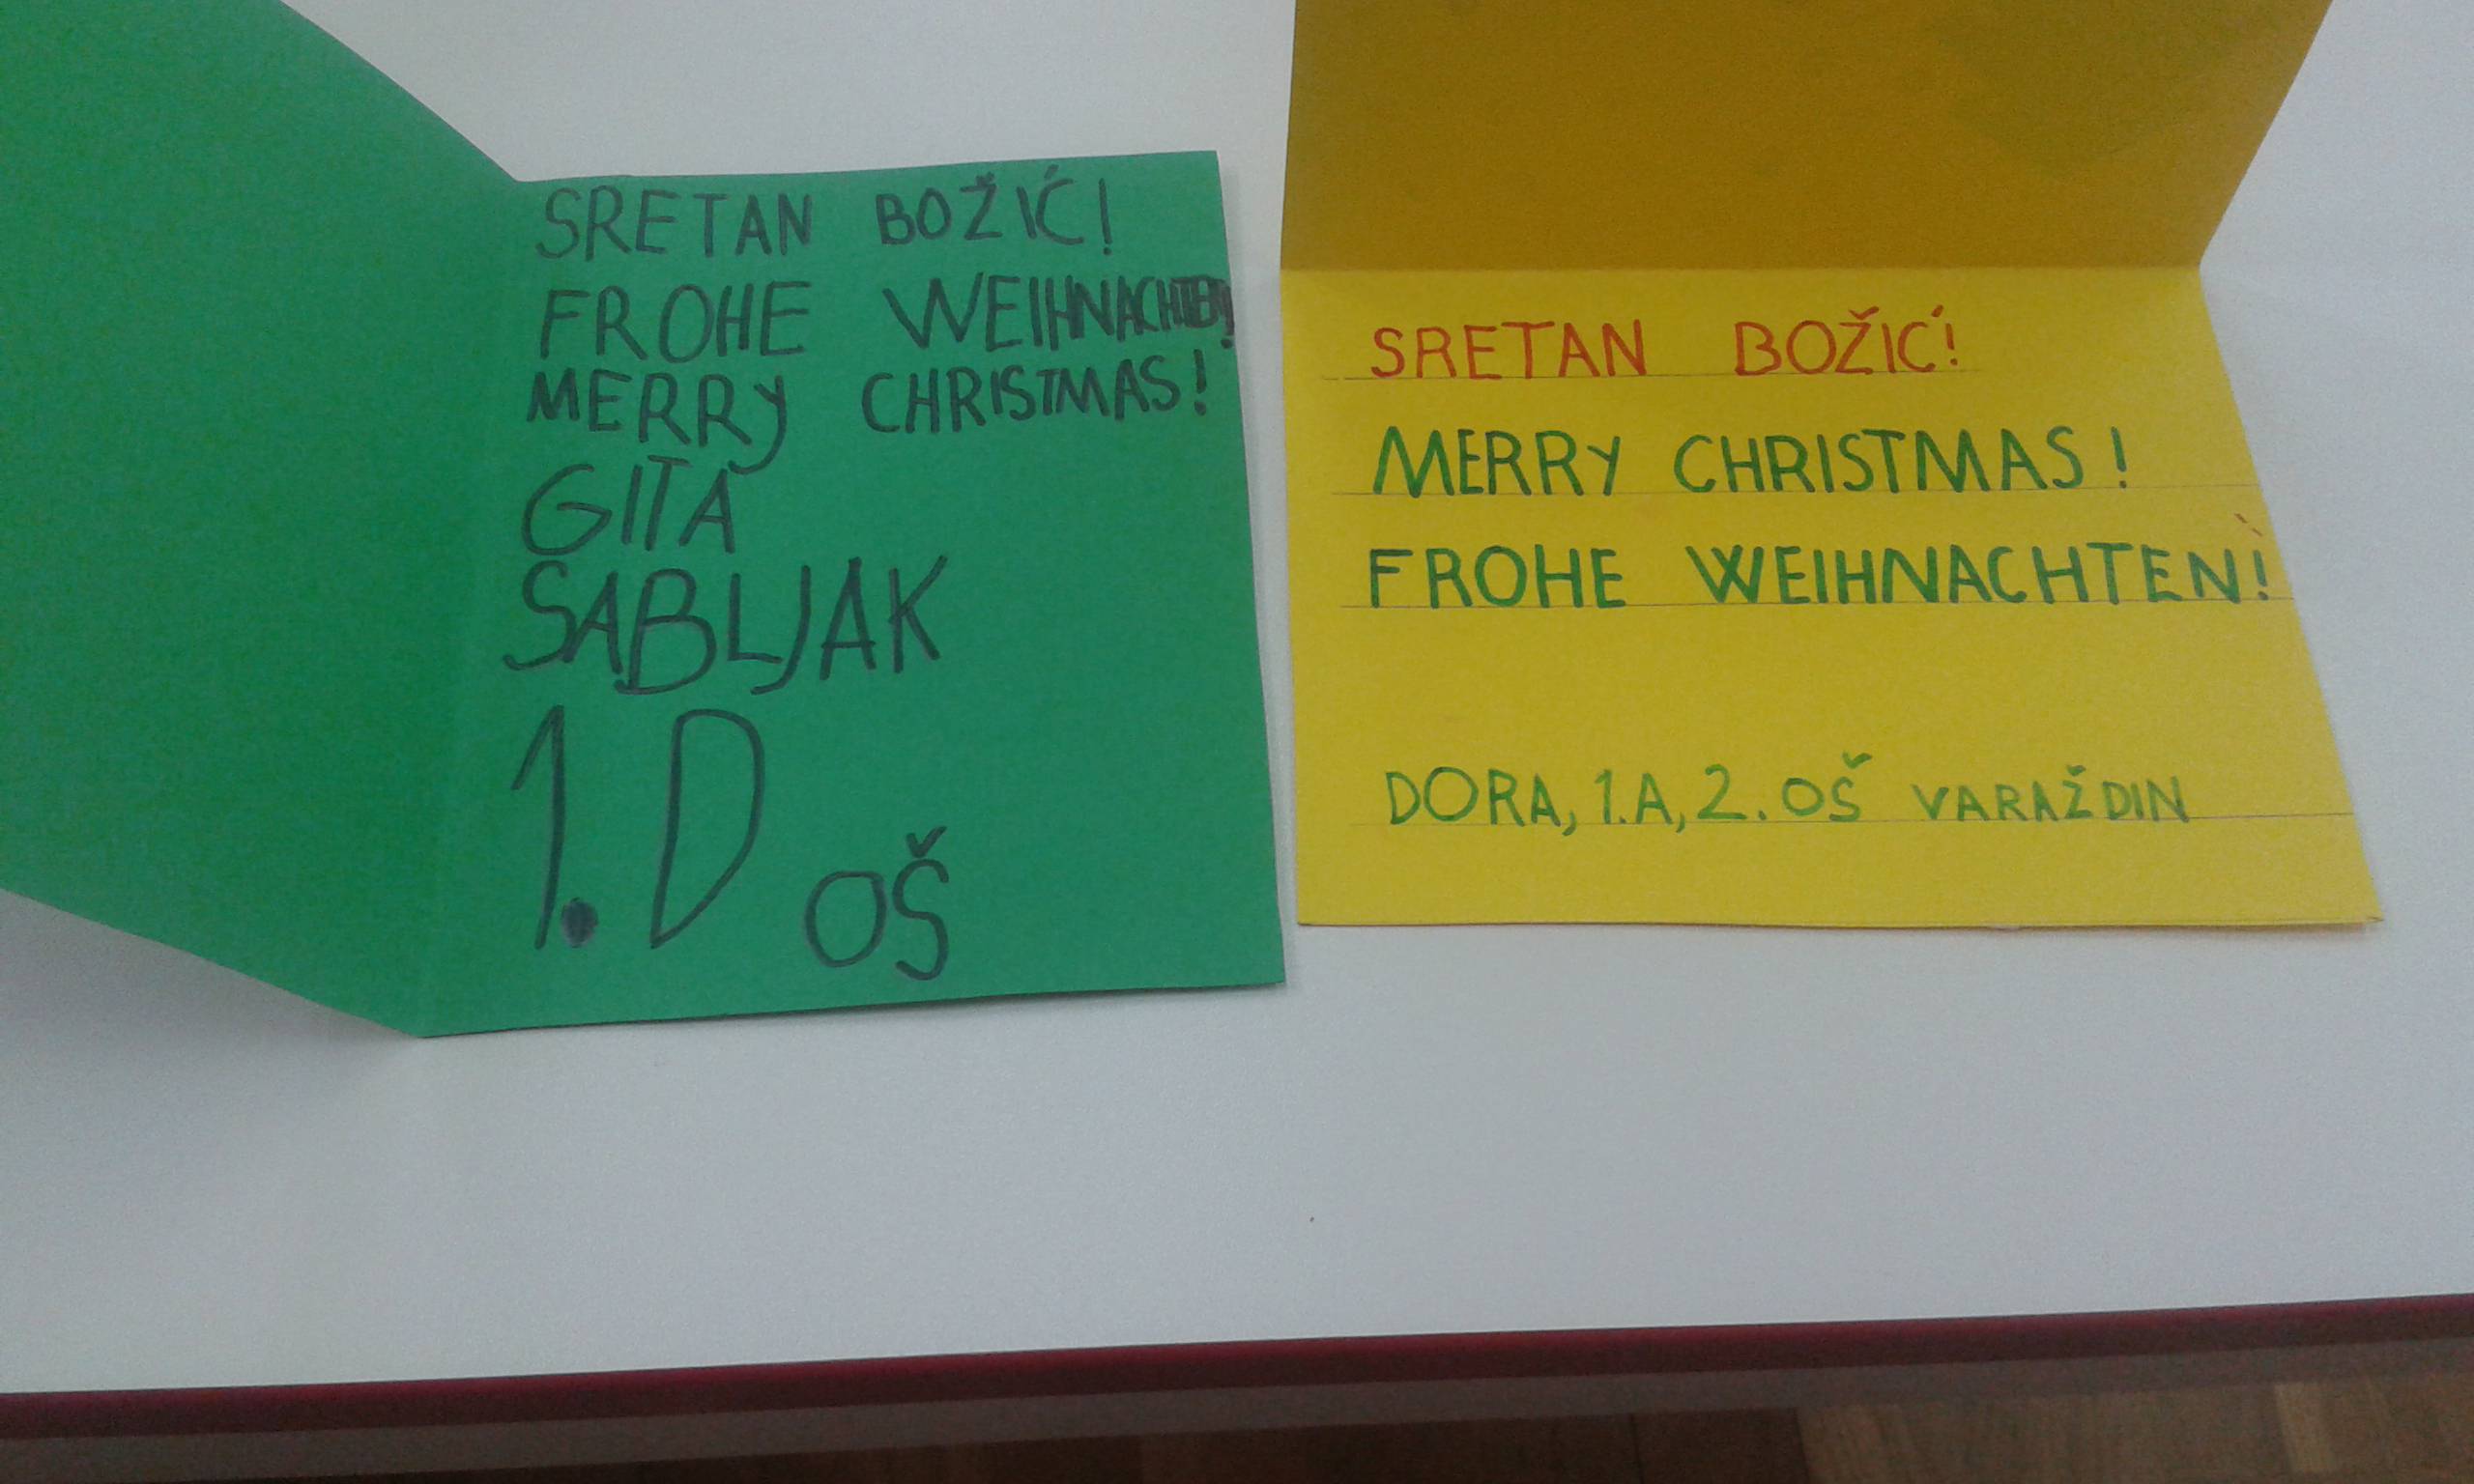 SRETAN BOŽIĆ!
FROHE WEIHNACHTEN!
MERRY CHRISTMAS!
GITA
SABLJAK
1.D OŠ
SRETAN BOŽIĆ!
MERRY CHRISTMAS!
FROHE WEIHNACHTEN!
DORA, 1.A, 2. OŠ VARAŽDIN